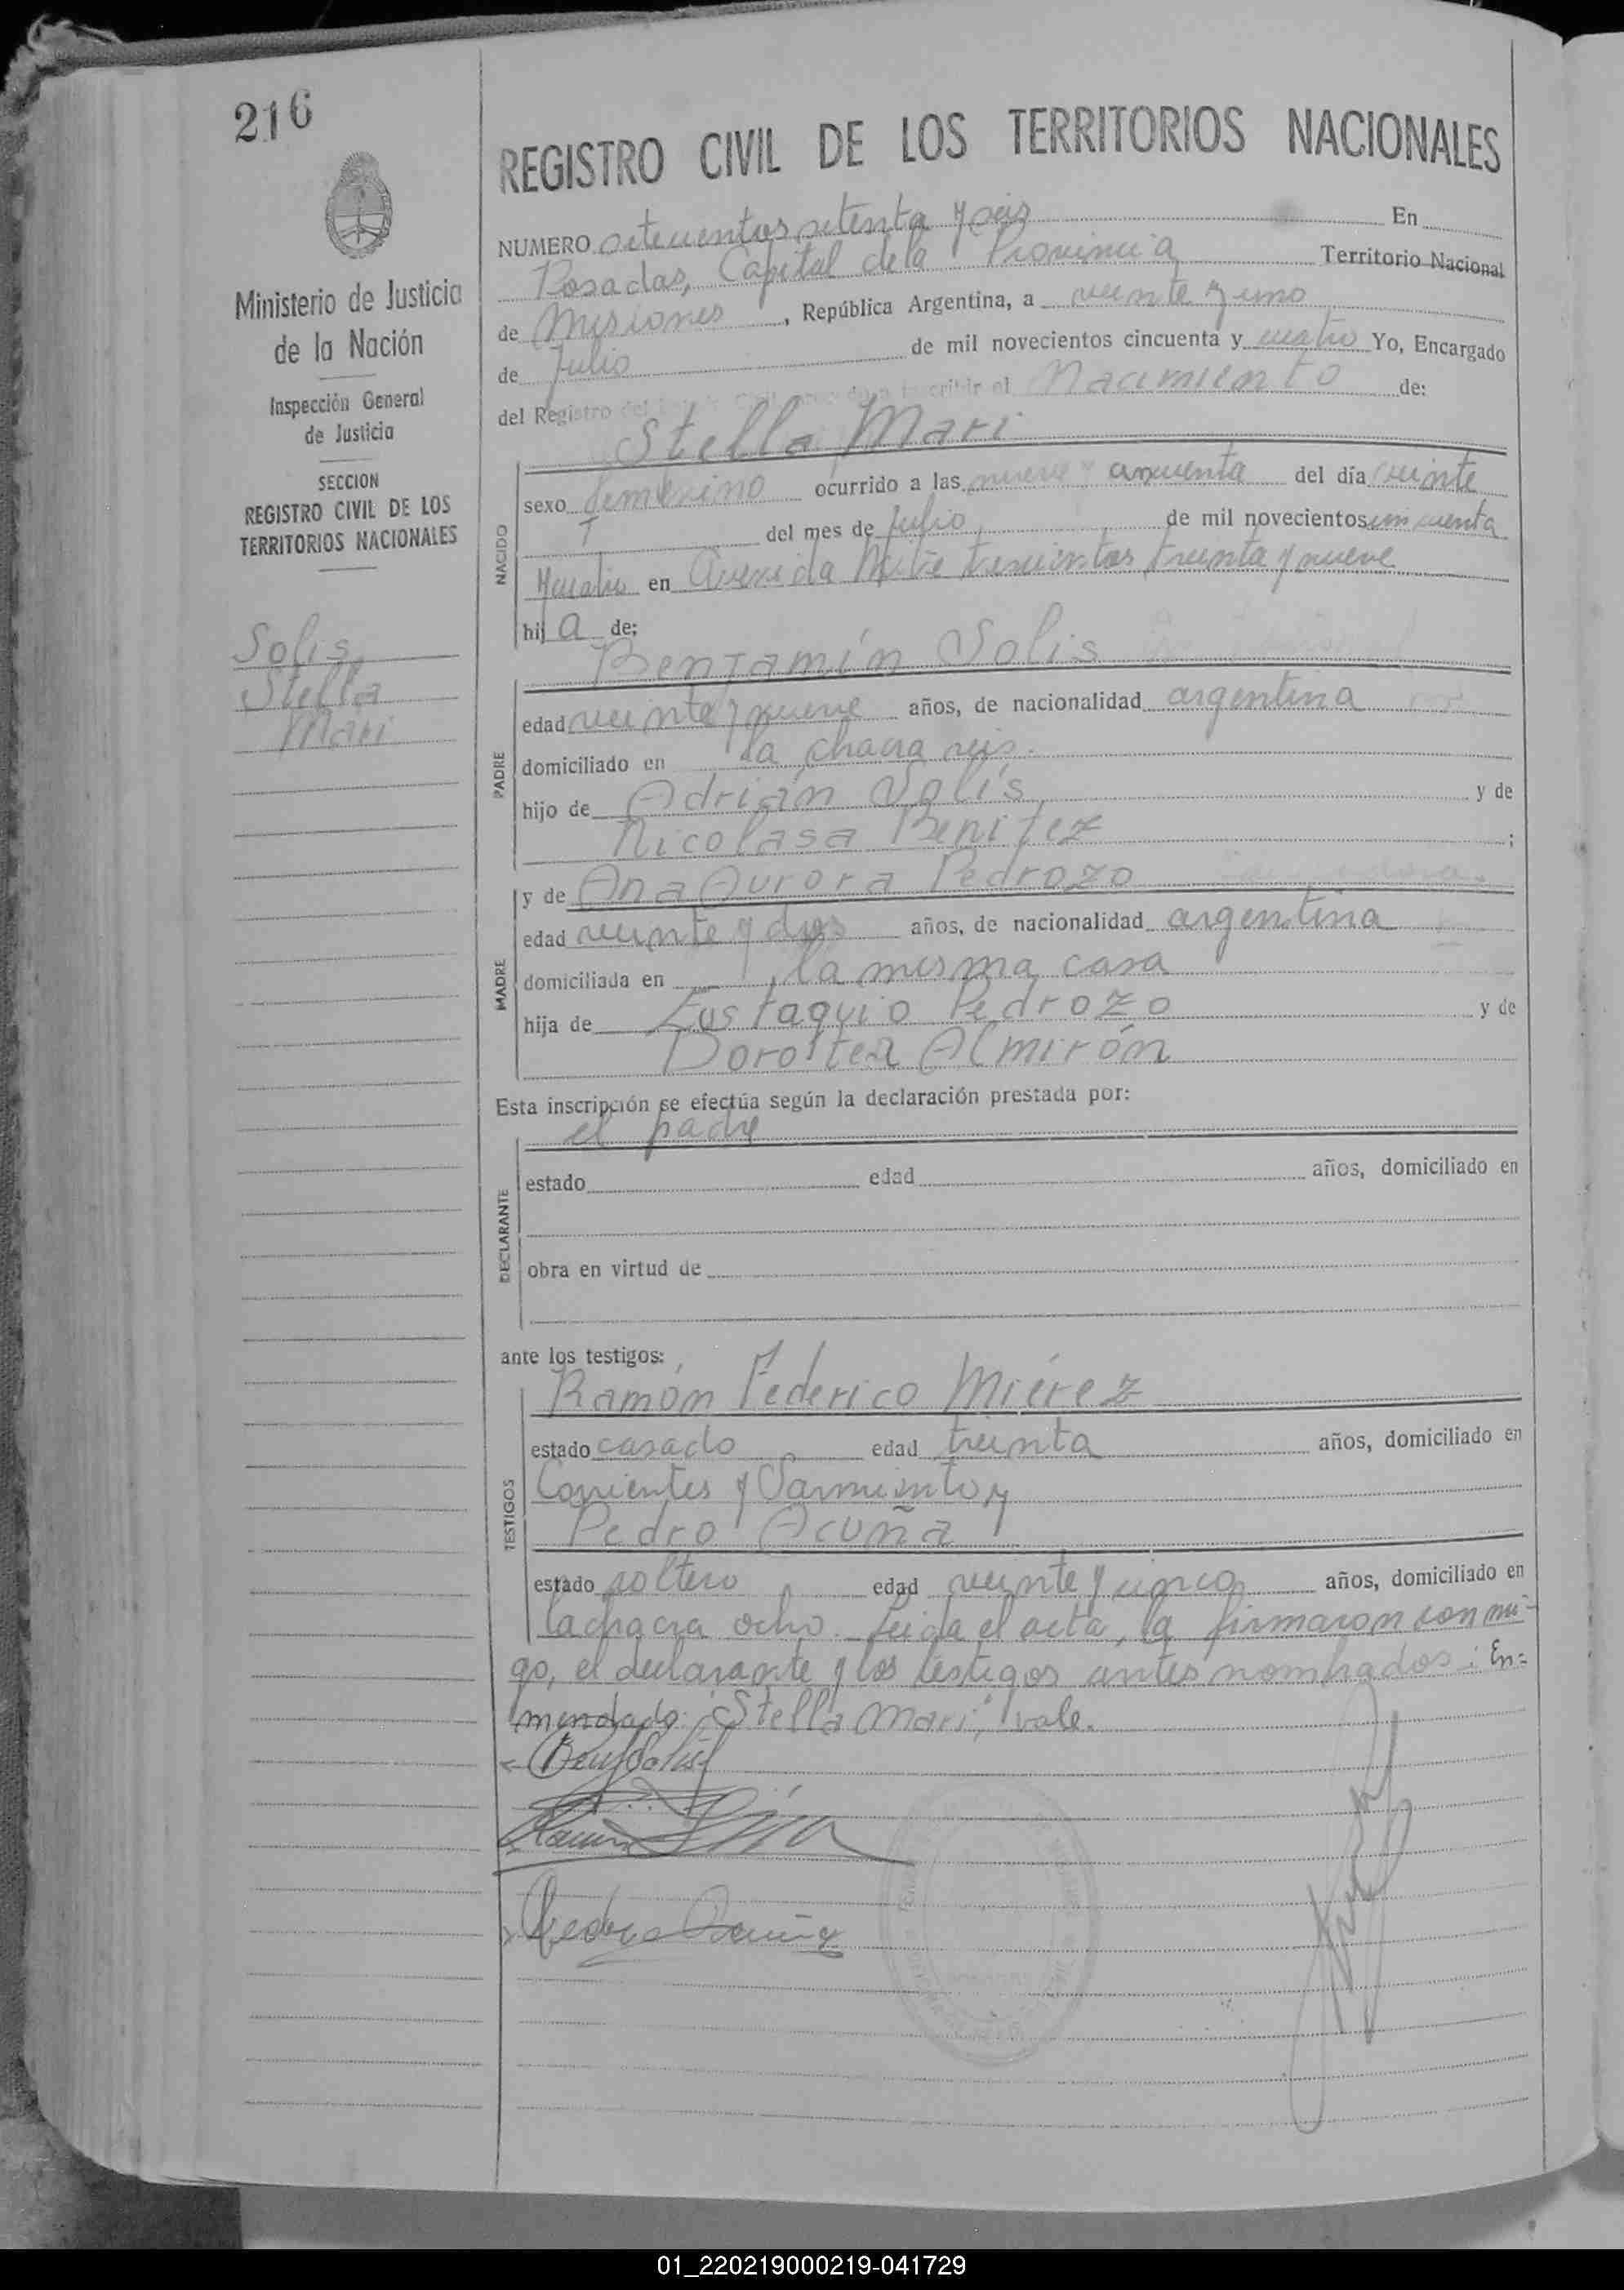 216
Ministerio de Justicia
de la Nación
Inspección General
de Justicia
SECCION
REGISTRO CIVIL DE LOS
TERRITORIOS NACIONALES
Solis
Stella
Mari
REGISTRO CIVIL DE LOS TERRITORIOS NACIONALES
NUMERO setecientos setenta y seis En
Posadas, Capital de la Provincia Territorio Nacional
de Misiones, República Argentina, a veinte y uno
de Julio de mil novecientos cincuenta y cuatro Yo, Encargado
del Registro inscribir el Nacimiento de:
Stella Mari
NACIDO
sexo femenino ocurrido a las nueve y cincuenta del día veinte
del mes de Julio de mil novecientos cincuenta
y cuatro en Avenida Mitre trescientos treinta y nueve
hija de:
Benjamín Solis
PADRE
edad veinte y nueve años, de nacionalidad argentina
domiciliado en la chacra seis.
hijo de Adrián Solís y de
Nicolasa Benitez ;
y de Ana Aurora Pedrozo
MADRE
edad veinte y dos años, de nacionalidad argentina
domiciliada en la misma casa
hija de Eustaquio Pedrozo y de
Dorotea Almirón
Esta inscripción se efectúa según la declaración prestada por:
el padre
DECLARANTE
estado edad años, domiciliado en
obra en virtud de
ante los testigos:
Ramón Federico Miérez
TESTIGOS
estado casado edad treinta años, domiciliado en
Corrientes y Sarmiento, y
Pedro Acuña
estado soltero edad veinte y cinco años, domiciliado en
la chacra ocho. Leida el acta, la firmaron conmi-
go, el declarante y los testigos antes nombrados: En=
mendado: "Stella Mari," vale.
Benj Solis
Pedro Acuña
01_220219000219-041729